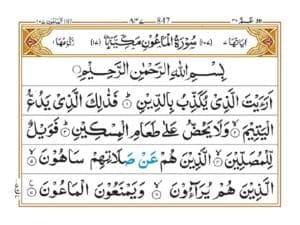 سُوْرَةُ الْمَاعُوْنِ مَكِّيَّةٌ
بِسْمِ اللّٰهِ الرَّحْمٰنِ الرَّحِيْمِ
اَرَءَيْتَ الَّذِىْ يُكَذِّبُ بِالدِّيْنِ ۞ فَذٰلِكَ الَّذِىْ يَدُعُّ
الْيَتِيْمَ ۞ وَلَا يَحُضُّ عَلٰى طَعَامِ الْمِسْكِيْنِ ۞ فَوَيْلٌ
لِّلْمُصَلِّيْنَ ۞ الَّذِيْنَ هُمْ عَنْ صَلَاتِهِمْ سَاهُوْنَ ۞
الَّذِيْنَ هُمْ يُرَآءُوْنَ ۞ وَيَمْنَعُوْنَ الْمَاعُوْنَ ۞